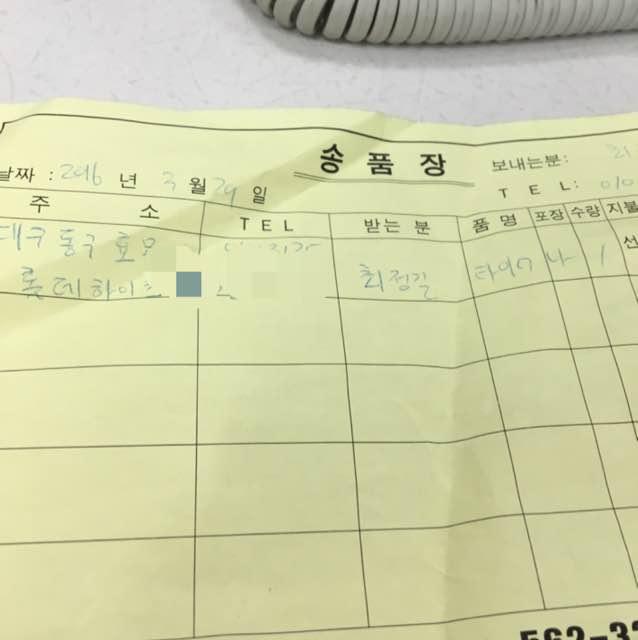 송품장
날짜 : 2016 년 3 월 29 일
보내는분:
TEL: 010
주 소 TEL 받는 분 품명 포장 수량 지불
대구 동구 효모
롯데하이츠 최정길 나 1 선